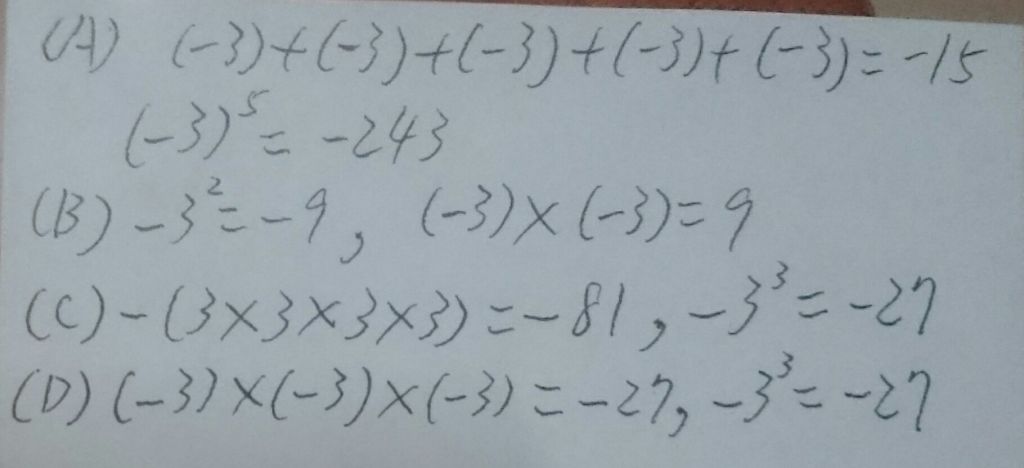 (A) (-3)+(-3)+(-3)+(-3)+(-3)=-15
(-3)⁵=-243
(B) -3²=-9, (-3)×(-3)=9
(C) -(3×3×3×3)=-81, -3³=-27
(D) (-3)×(-3)×(-3)=-27, -3³=-27